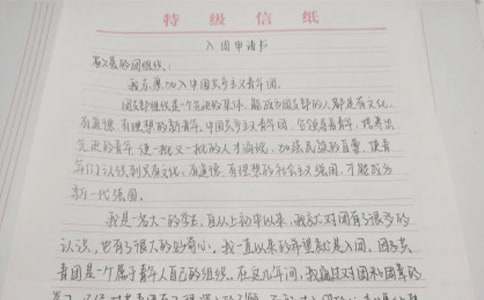 特级信纸
入团申请书
敬爱的团组织:
我志愿加入中国共产主义青年团。
团支部组织是一个先进的集体,能成为团支部的人都是有文化,
有道德,有理想的新青年。中国共产主义青年团,它领导着青年,培养出
先进的青年,使一批又一批的人才涌现,加强民族的力量,使青
年们认识到只有文化,有道德,有理想的社会主义强国,才能成为
新一代强国。
我是一名大一的学生,自从上初中以来,我就对团有了很多的
认识,也有了很大的好奇心。我一直以来的希望就是入团。团员共
青团是一个属于青年人自己的组织。在这几年间,我通过对团和团章的